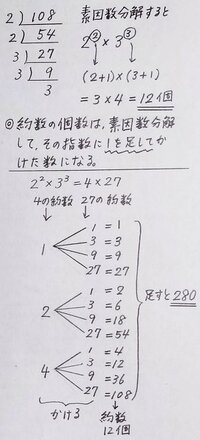 2)108 素因数分解すると
2)54 2② × 3③
3)27 ↓ ↓
3)9 (2+1)×(3+1)
3 = 3×4 = 12個
◎約数の個数は、素因数分解
して、その指数に1を足してか
けた数になる。
2²×3³=4×27
4の約数 27の約数
1 = 1
3 = 3
1 9 = 9
27 = 27
1 = 2
3 = 6
2 9 = 18
27 = 54
足すと280
1 = 4
3 = 12
4 9 = 36
27 = 108
かける 約数
12個